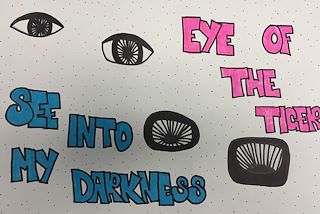 EYE OF
THE
TIGER
SEE INTO
MY DARKNESS